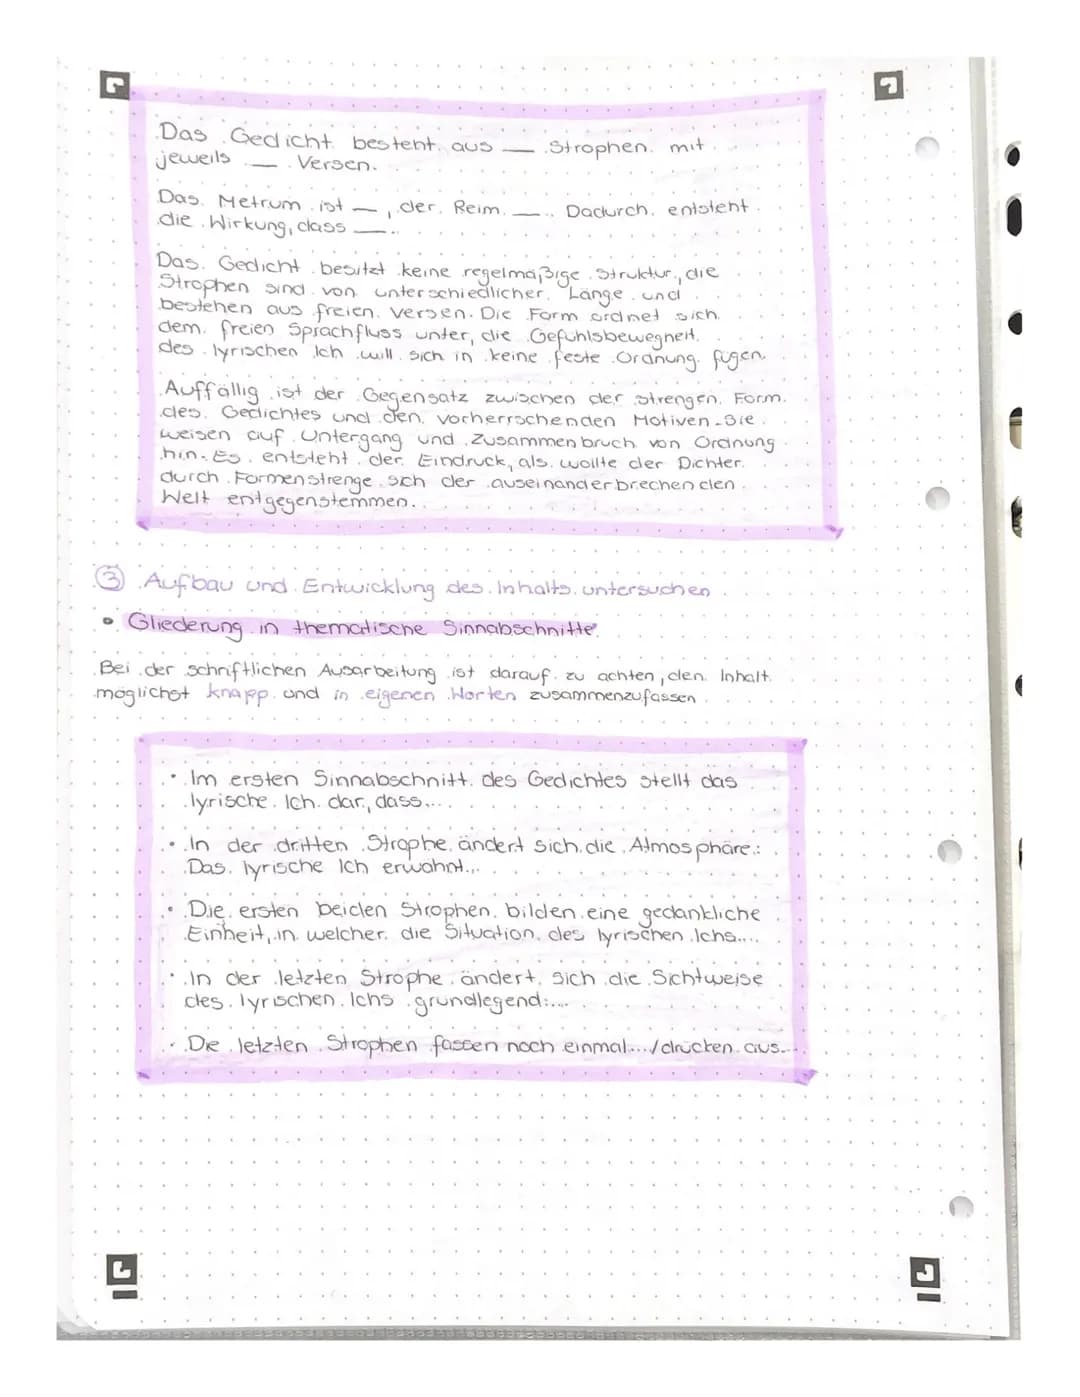 Das Gedicht besteht aus __ Strophen mit
jeweils __ Versen.
Das Metrum ist __, der Reim __. Dadurch entsteht
die Wirkung, dass __.
Das Gedicht besitzt keine regelmäßige Struktur, die
Strophen sind von unterschiedlicher Länge und
bestehen aus freien Versen. Die Form ordnet sich
dem freien Sprachfluss unter, die Gefühlsbewegheit
des lyrischen Ich will sich in keine feste Ordnung fügen.
Auffällig ist der Gegensatz zwischen der strengen Form
des Gedichtes und den vorherrschenden Motiven. Sie
weisen auf Untergang und Zusammenbruch von Ordnung
hin. Es entsteht der Eindruck, als wollte der Dichter
durch Formenstrenge sich der auseinanderbrechenden
Welt entgegenstemmen.
③ Aufbau und Entwicklung des Inhalts untersuchen
• Gliederung in thematische Sinnabschnitte
Bei der schriftlichen Ausarbeitung ist darauf zu achten, den Inhalt
möglichst knapp und in eigenen Worten zusammenzufassen
• Im ersten Sinnabschnitt des Gedichtes stellt das
lyrische Ich dar, dass...
• In der dritten Strophe ändert sich die Atmosphäre:
Das lyrische Ich erwähnt...
• Die ersten beiden Strophen bilden eine gedankliche
Einheit, in welcher die Situation des lyrischen Ichs...
• In der letzten Strophe ändert sich die Sichtweise
des lyrischen Ichs grundlegend:...
• Die letzten Strophen fassen noch einmal.../drücken aus...